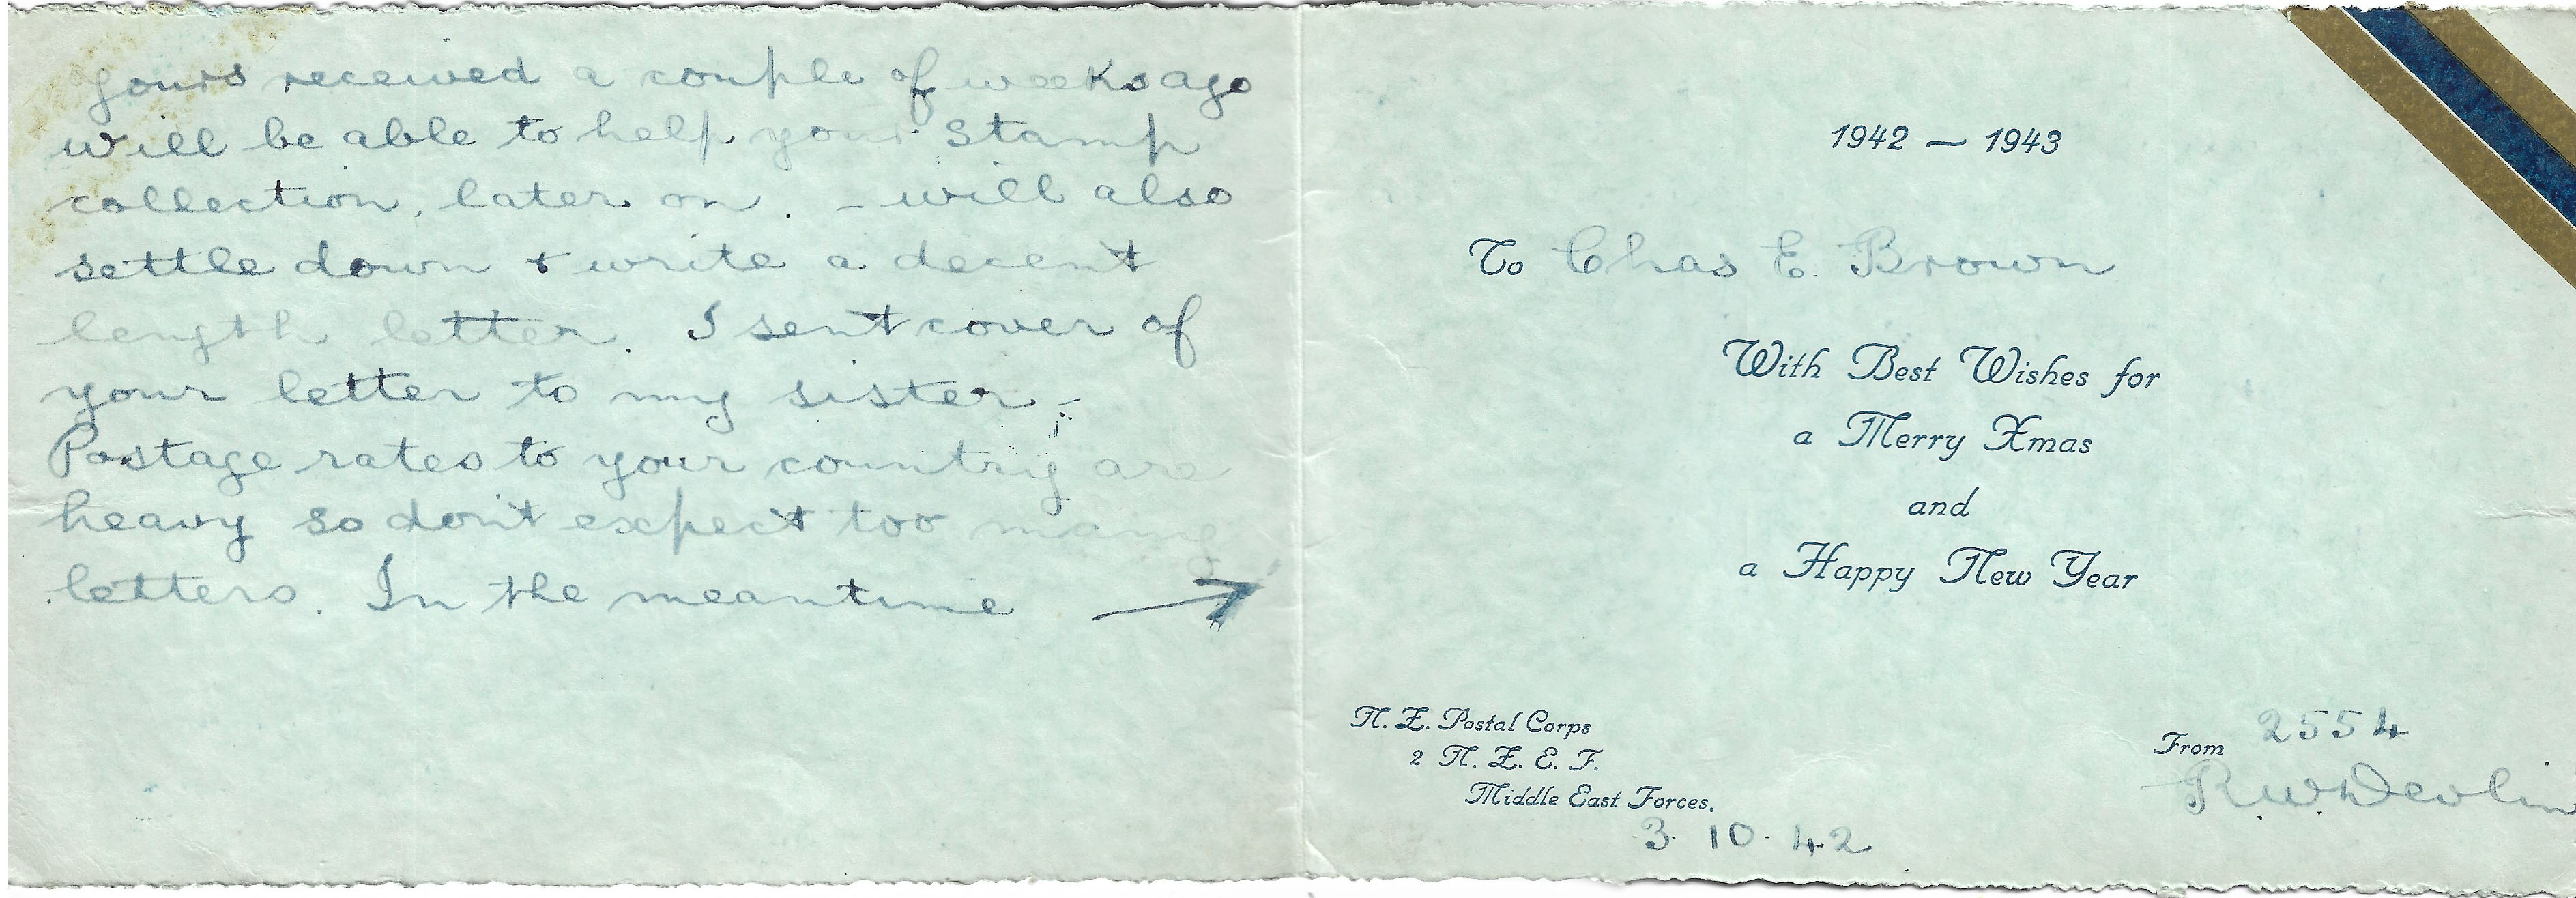 yours received a couple of weeks ago
will be able to help your stamp
collection, later on. – will also
settle down & write a decent
length letter. I sent cover of
your letter to my sister.–
Postage rates to your country are
heavy so don't expect too many
letters. In the meantime →
1942 — 1943
To Chas E. Brown
With Best Wishes for
a Merry Xmas
and
a Happy New Year
N. Z. Postal Corps
2 N. Z. E. F.
Middle East Forces.
3. 10. 42
From 2554
R W Devlin